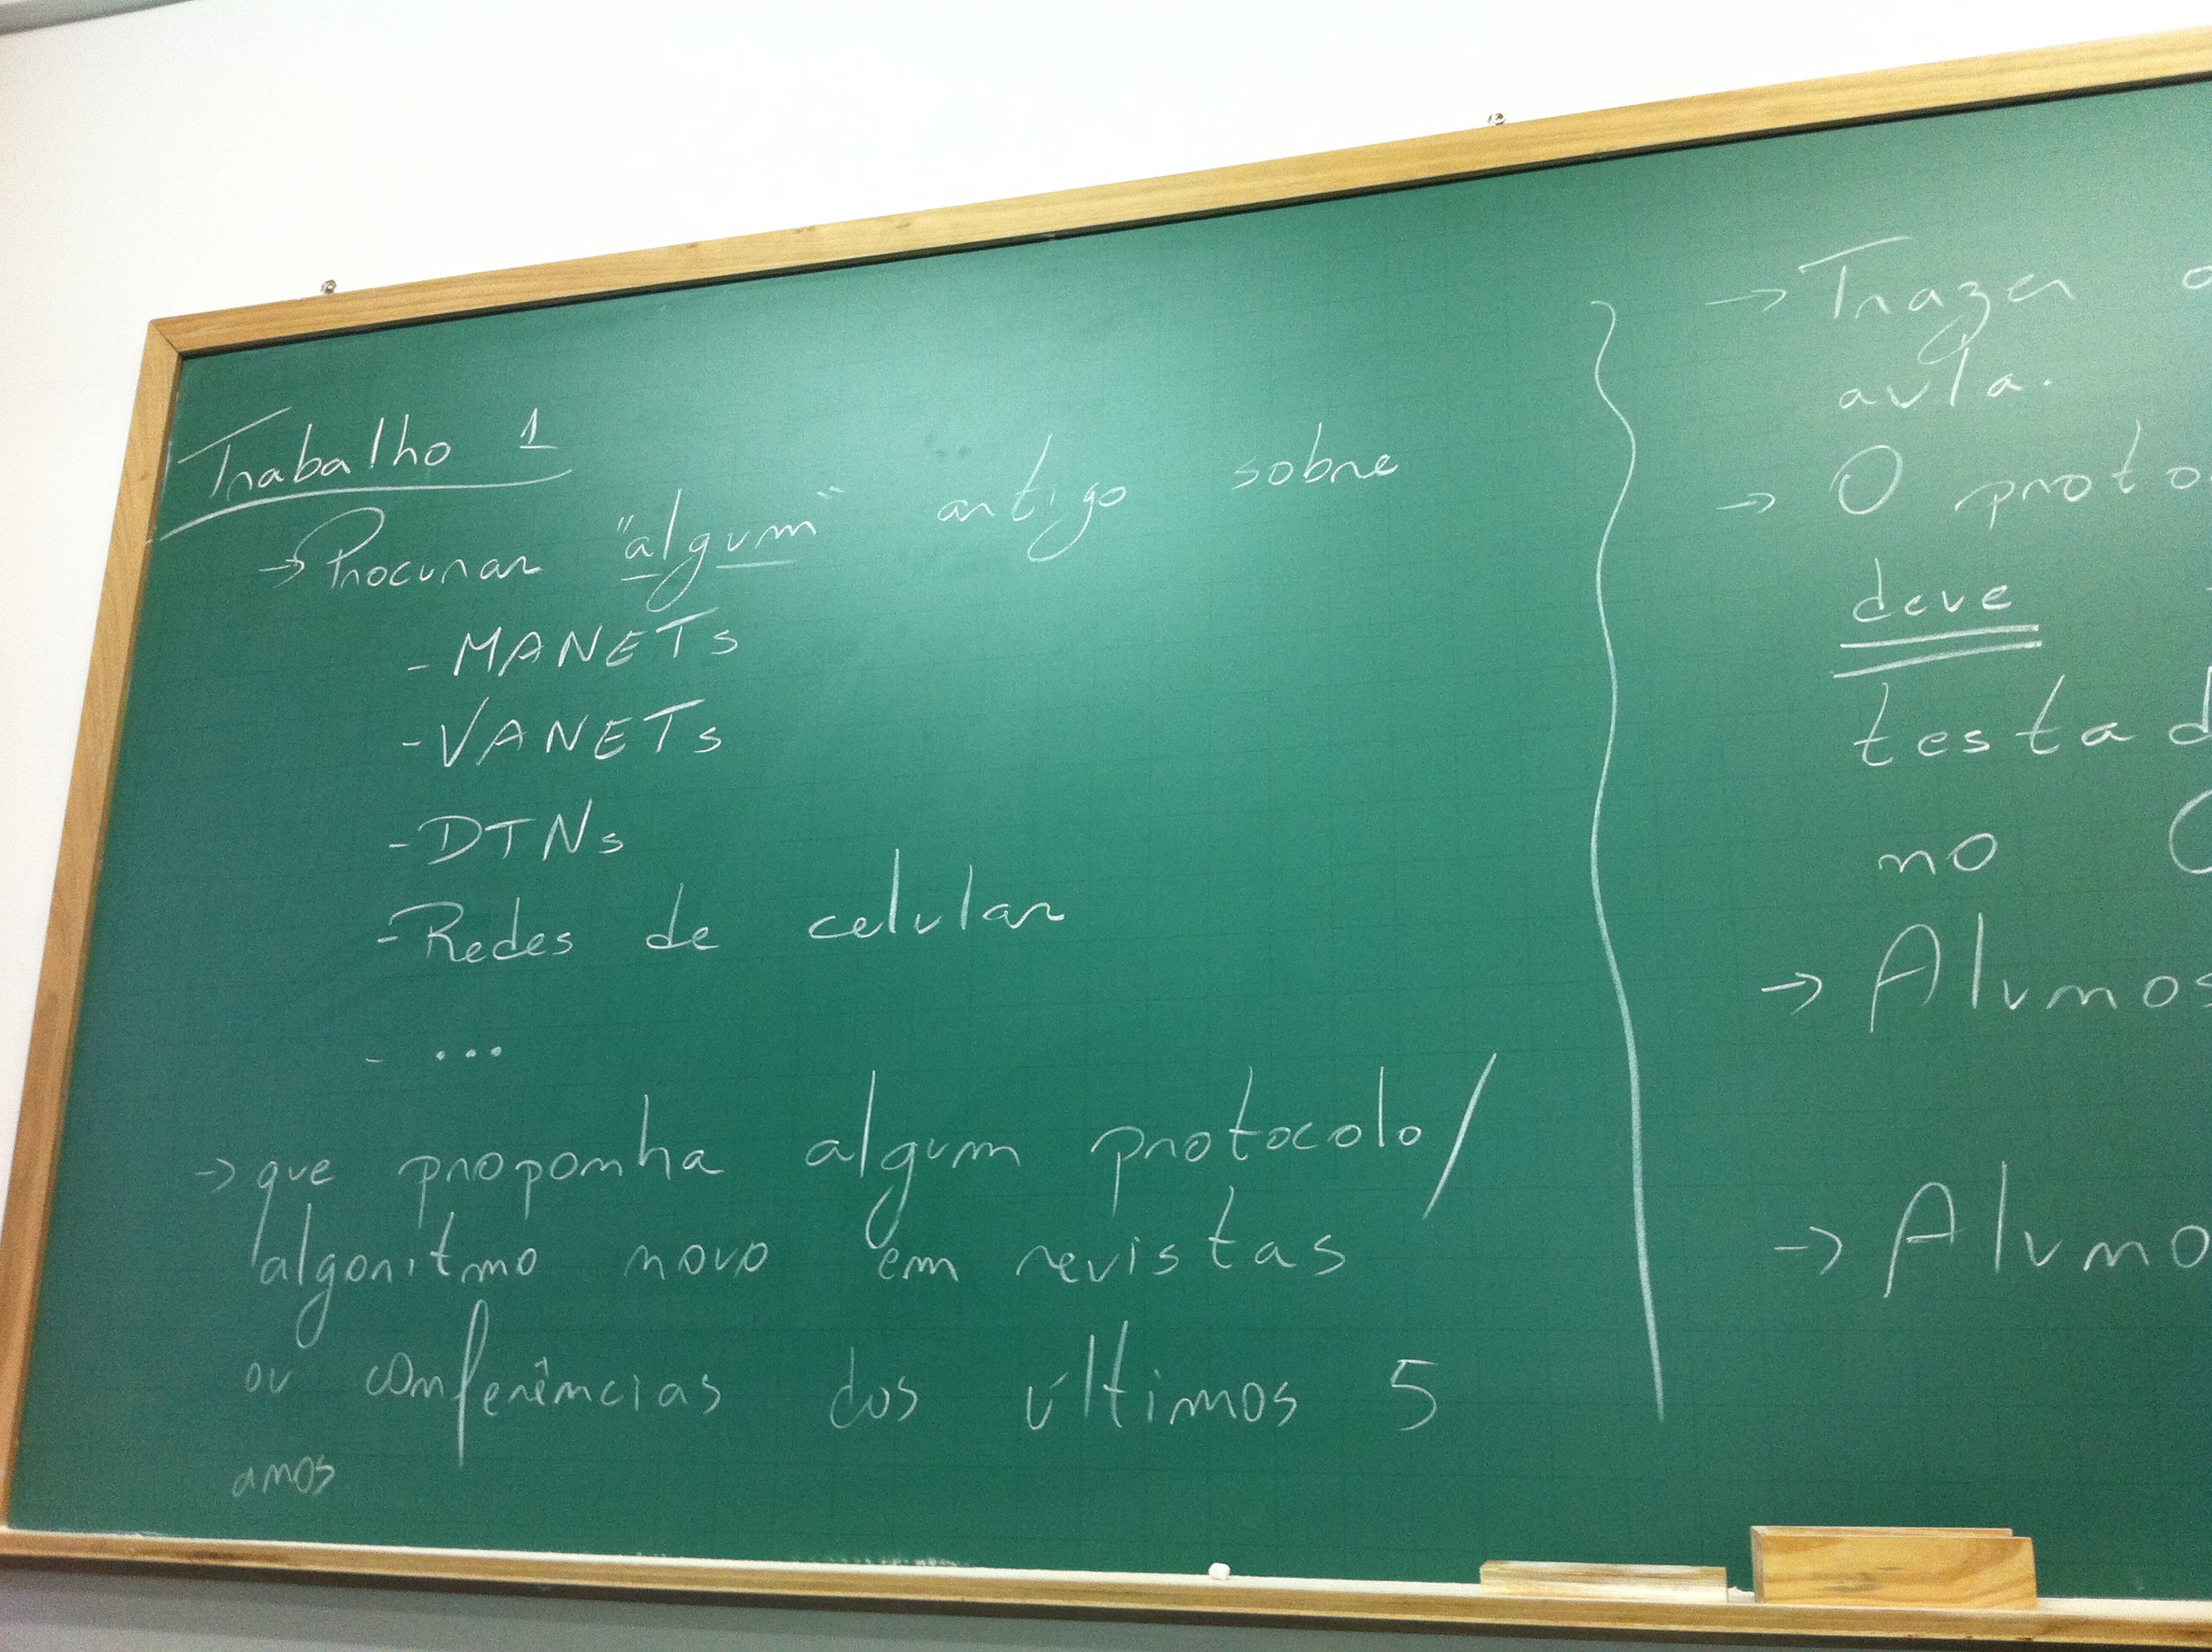 Trabalho 1
→ Procurar "algum" artigo sobre
- MANETs
- VANETs
- DTNs
- Redes de celular
- ...
→ que proponha algum protocolo/
algoritmo novo em revistas
ou conferências dos últimos 5
anos
→ Trazer
aula.
→ O proto
deve
testad
no
→ Alunos
→ Aluno